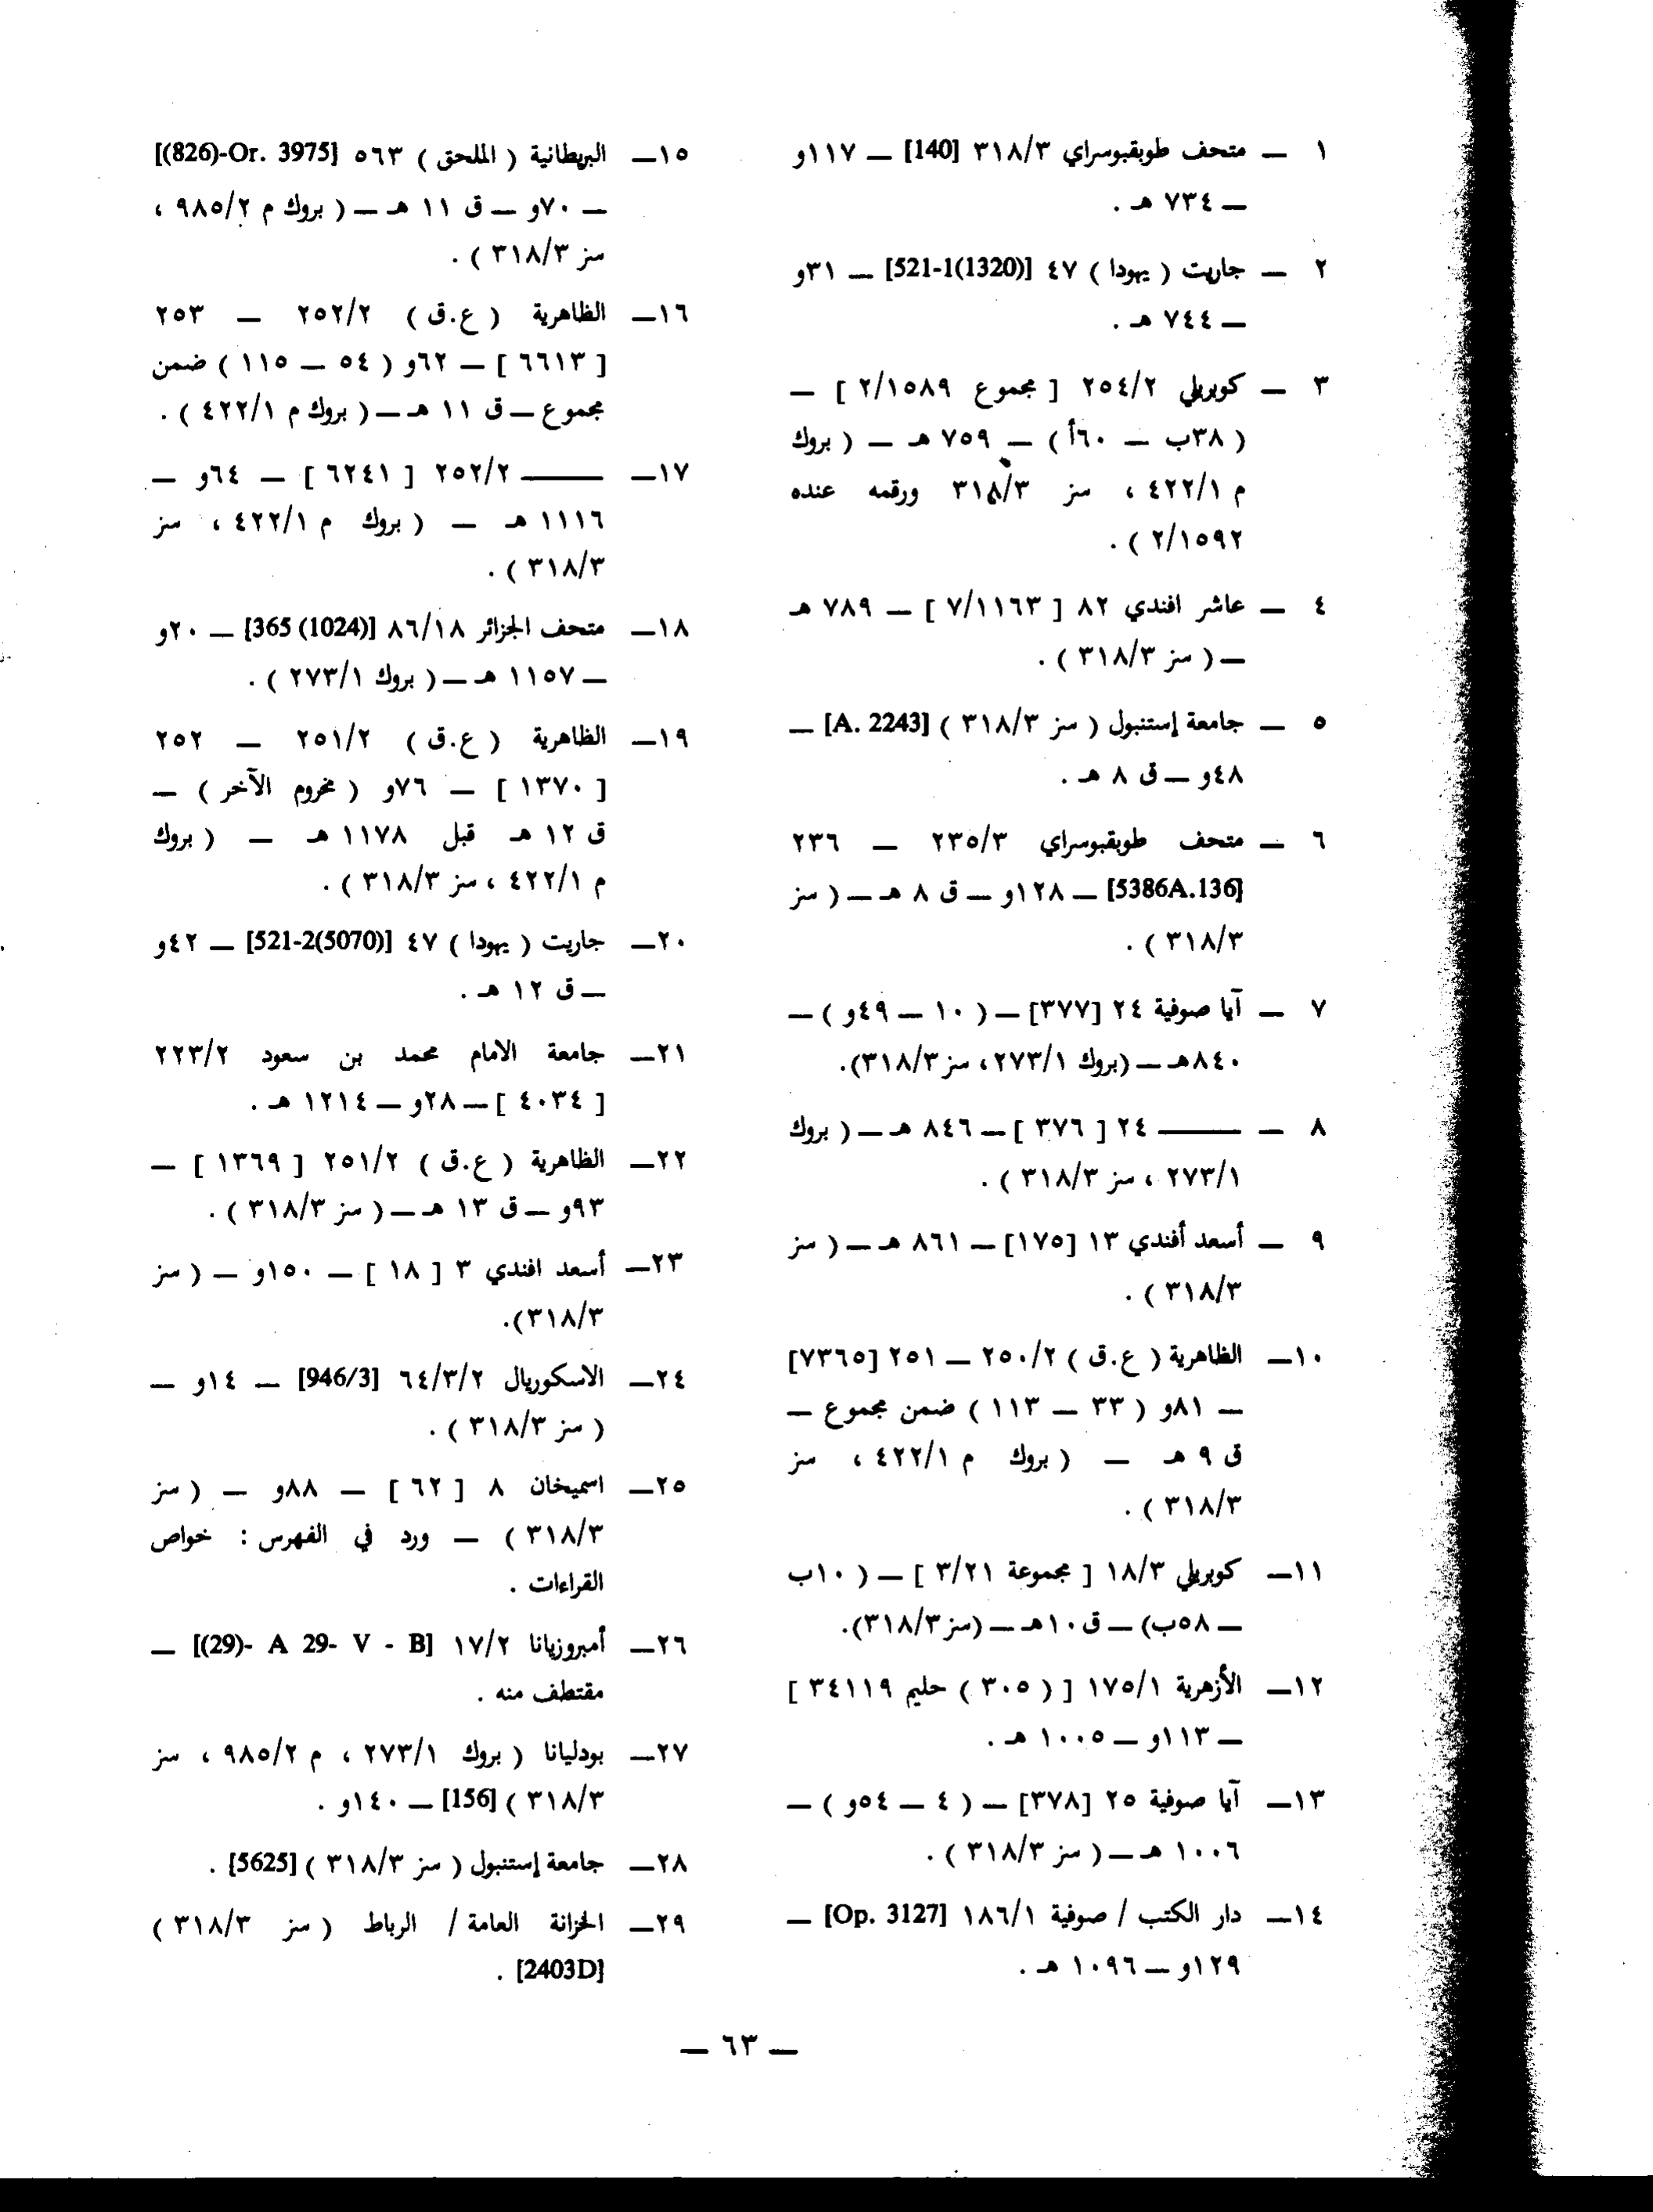 ١ — متحف طوبقبوسراي ٣١٨/٣ [140] — ١١٧و
— ٧٣٤ هـ .
٢ — جاريت ( يهودا ) ٤٧ [521-1(1320)] — ٣١و
— ٧٤٤ هـ .
٣ — كوبريلي ٢٥٤/٢ [ مجموع ٢/١٥٨٩ ] —
( ٣٨ب — ٦٠أ ) — ٧٥٩ هـ — ( بروك
م ٤٢٢/١ ، سز ٣١٨/٣ ورقمه عنده
٢/١٥٩٢ ) .
٤ — عاشر افندي ٨٢ [ ٧/١١٦٣ ] — ٧٨٩ هـ
— ( سز ٣١٨/٣ ) .
٥ — جامعة إستنبول ( سز ٣١٨/٣ ) [A. 2243] —
٤٨و — ق ٨ هـ .
٦ — متحف طوبقبوسراي ٢٣٥/٣ — ٢٣٦
[5386A.136] — ١٢٨و — ق ٨ هـ — ( سز
٣١٨/٣ ) .
٧ — آيا صوفية ٢٤ [٣٧٧] — ( ١٠ — ٤٩و ) —
٨٤٠هـ — (بروك ٢٧٣/١ ، سز ٣١٨/٣).
٨ — ——— ٢٤ [ ٣٧٦ ] — ٨٤٦ هـ — ( بروك
٢٧٣/١ ، سز ٣١٨/٣ ) .
٩ — أسعد أفندي ١٣ [١٧٥] — ٨٦١ هـ — ( سز
٣١٨/٣ ) .
١٠— الظاهرية ( ع.ق ) ٢٥٠/٢ — ٢٥١ [٧٣٦٥]
— ٨١و ( ٣٣ — ١١٣ ) ضمن مجموع —
ق ٩ هـ — ( بروك م ٤٢٢/١ ، سز
٣١٨/٣ ) .
١١— كوبريلي ١٨/٣ [ مجموعة ٣/٢١ ] — ( ١٠ب
— ٥٨ب) — ق ١٠هـ — (سز ٣١٨/٣).
١٢— الأزهرية ١٧٥/١ [ ( ٣٠٥ ) حليم ٣٤١١٩ ]
— ١١٣و — ١٠٠٥ هـ .
١٣— آيا صوفية ٢٥ [٣٧٨] — ( ٤ — ٥٤و ) —
١٠٠٦ هـ — ( سز ٣١٨/٣ ) .
١٤— دار الكتب / صوفية ١٨٦/١ [Op. 3127] —
١٢٩و — ١٠٩٦ هـ .
١٥— البريطانية ( الملحق ) ٥٦٣ [(826)-Or. 3975]
— ٧٠و — ق ١١ هـ — ( بروك م ٩٨٥/٢ ،
سز ٣١٨/٣ ) .
١٦— الظاهرية ( ع.ق ) ٢٥٢/٢ — ٢٥٣
[ ٦٦١٣ ] — ٦٢و ( ٥٤ — ١١٥ ) ضمن
مجموع — ق ١١ هـ — ( بروك م ٤٢٢/١ ) .
١٧— ——— ٢٥٢/٢ [ ٦٢٤١ ] — ٦٤و —
١١١٦ هـ — ( بروك م ٤٢٢/١ ، سز
٣١٨/٣ ) .
١٨— متحف الجزائر ٨٦/١٨ [365 (1024)] — ٢٠و
— ١١٥٧ هـ — ( بروك ٢٧٣/١ ) .
١٩— الظاهرية ( ع.ق ) ٢٥١/٢ — ٢٥٢
[ ١٣٧٠ ] — ٧٦و ( مخروم الآخر ) —
ق ١٢ هـ قبل ١١٧٨ هـ — ( بروك
م ٤٢٢/١ ، سز ٣١٨/٣ ) .
٢٠— جاريت ( يهودا ) ٤٧ [521-2(5070)] — ٤٢و
— ق ١٢ هـ .
٢١— جامعة الامام محمد بن سعود ٢٢٣/٢
[ ٤٠٣٤ ] — ٢٨و — ١٢١٤ هـ .
٢٢— الظاهرية ( ع.ق ) ٢٥١/٢ [ ١٣٦٩ ] —
٩٣و — ق ١٣ هـ — ( سز ٣١٨/٣ ) .
٢٣— أسعد افندي ٣ [ ١٨ ] — ١٥٠و — ( سز
٣١٨/٣).
٢٤— الاسكوريال ٦٤/٣/٢ [946/3] — ١٤و —
( سز ٣١٨/٣ ) .
٢٥— اسميخان ٨ [ ٦٢ ] — ٨٨و — ( سز
٣١٨/٣ ) — ورد في الفهرس : خواص
القراءات .
٢٦— أمبروزيانا ١٧/٢ [(29)- A 29- V - B] —
مقتطف منه .
٢٧— بودليانا ( بروك ٢٧٣/١ ، م ٩٨٥/٢ ، سز
٣١٨/٣ ) [156] — ١٤٠و .
٢٨— جامعة إستنبول ( سز ٣١٨/٣ ) [5625] .
٢٩— الخزانة العامة / الرباط ( سز ٣١٨/٣ )
[2403D] .
— ٦٣ —